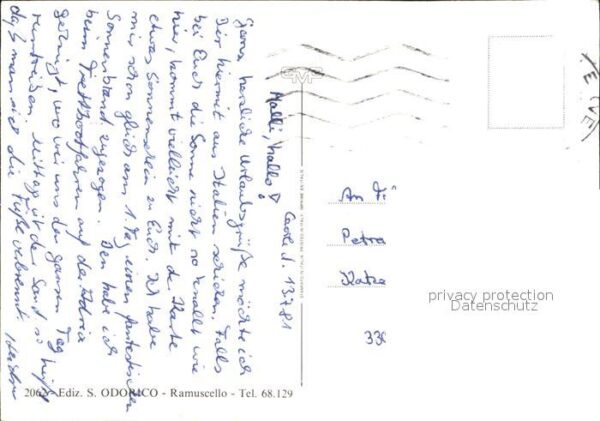 Halli, hallo!
Caorle, d. 13.7.81
Ganz herzliche Urlaubsgrüße möchte ich
Dir hiermit aus Italien schicken. Falls
bei Euch die Sonne nicht so knallt wie
hier, kommt vielleicht mit der Karte
etwas Sonnenschein zu Euch. Ich habe
mir schon gleich am 1. Tag einen
Sonnenbrand zugezogen. Den habe ich
beim Tretbootfahren auf der Adria
gekriegt, wo wir uns den ganzen Tag
Mittags ist der Sand so heiß,
daß man sich die Füße verbrennt.
2062 - Ediz. S. ODORICO - Ramuscello - Tel. 68.129
An
Petra
338
privacy protection
Datenschutz